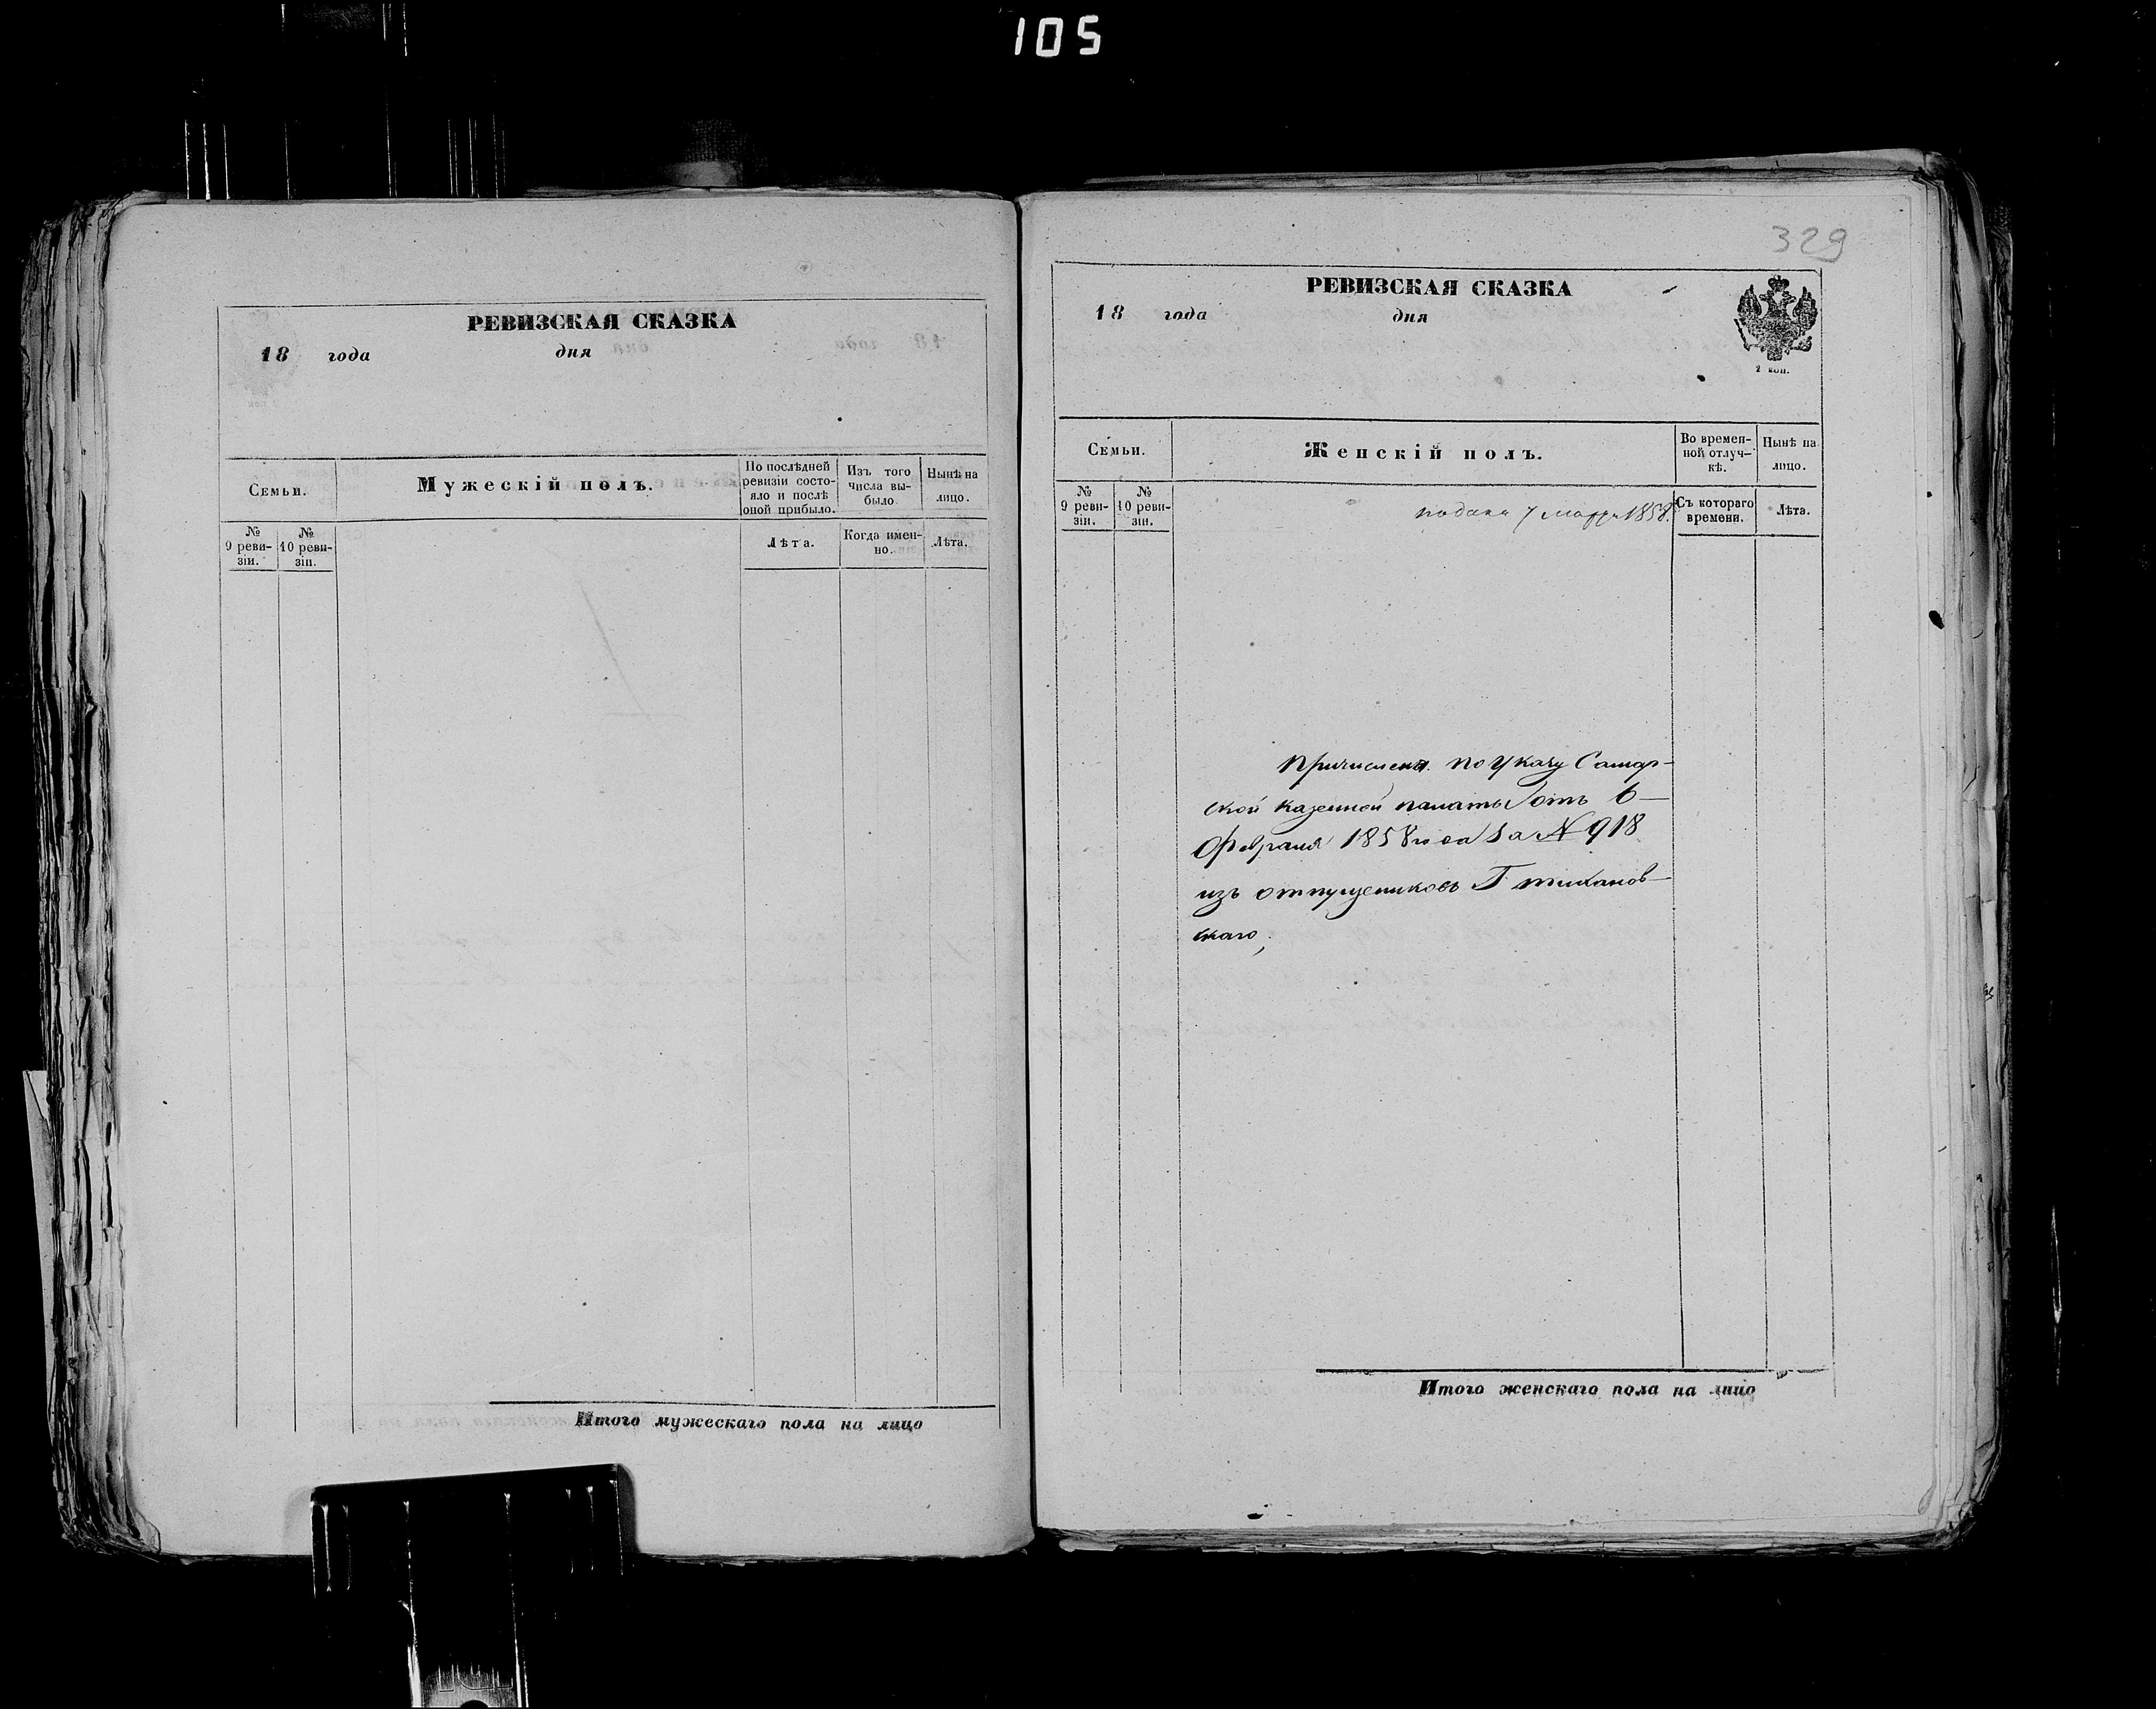 105
РЕВИЗСКАЯ СКАЗКА
18 года дня
Семьи.
Мужескій полъ.
По послѣдней ревизіи состо-
яло и послѣ оной прибыло.
Изъ того числа вы-
было.
Нынѣ на лицо.
№ 9 реви-
зіи.
№ 10 реви-
зіи.
Лѣта.
Когда имен-
но.
Лѣта.
Итого мужескаго пола на лицо
329
РЕВИЗСКАЯ СКАЗКА
18 года дня
2 коп.
Семьи.
Женскій полъ.
Во времен-
ной отлуч-
кѣ.
Нынѣ на лицо.
№ 9 реви-
зіи.
№ 10 реви-
зіи.
подана 7 марта 1858.
Съ котораго времени.
Лѣта.
Причислена по Указу Самар-
ской казенной палаты отъ 6
Февраля 1858 года за № 918
изъ отпущениковъ Г
скаго,
Итого женскаго пола на лицо